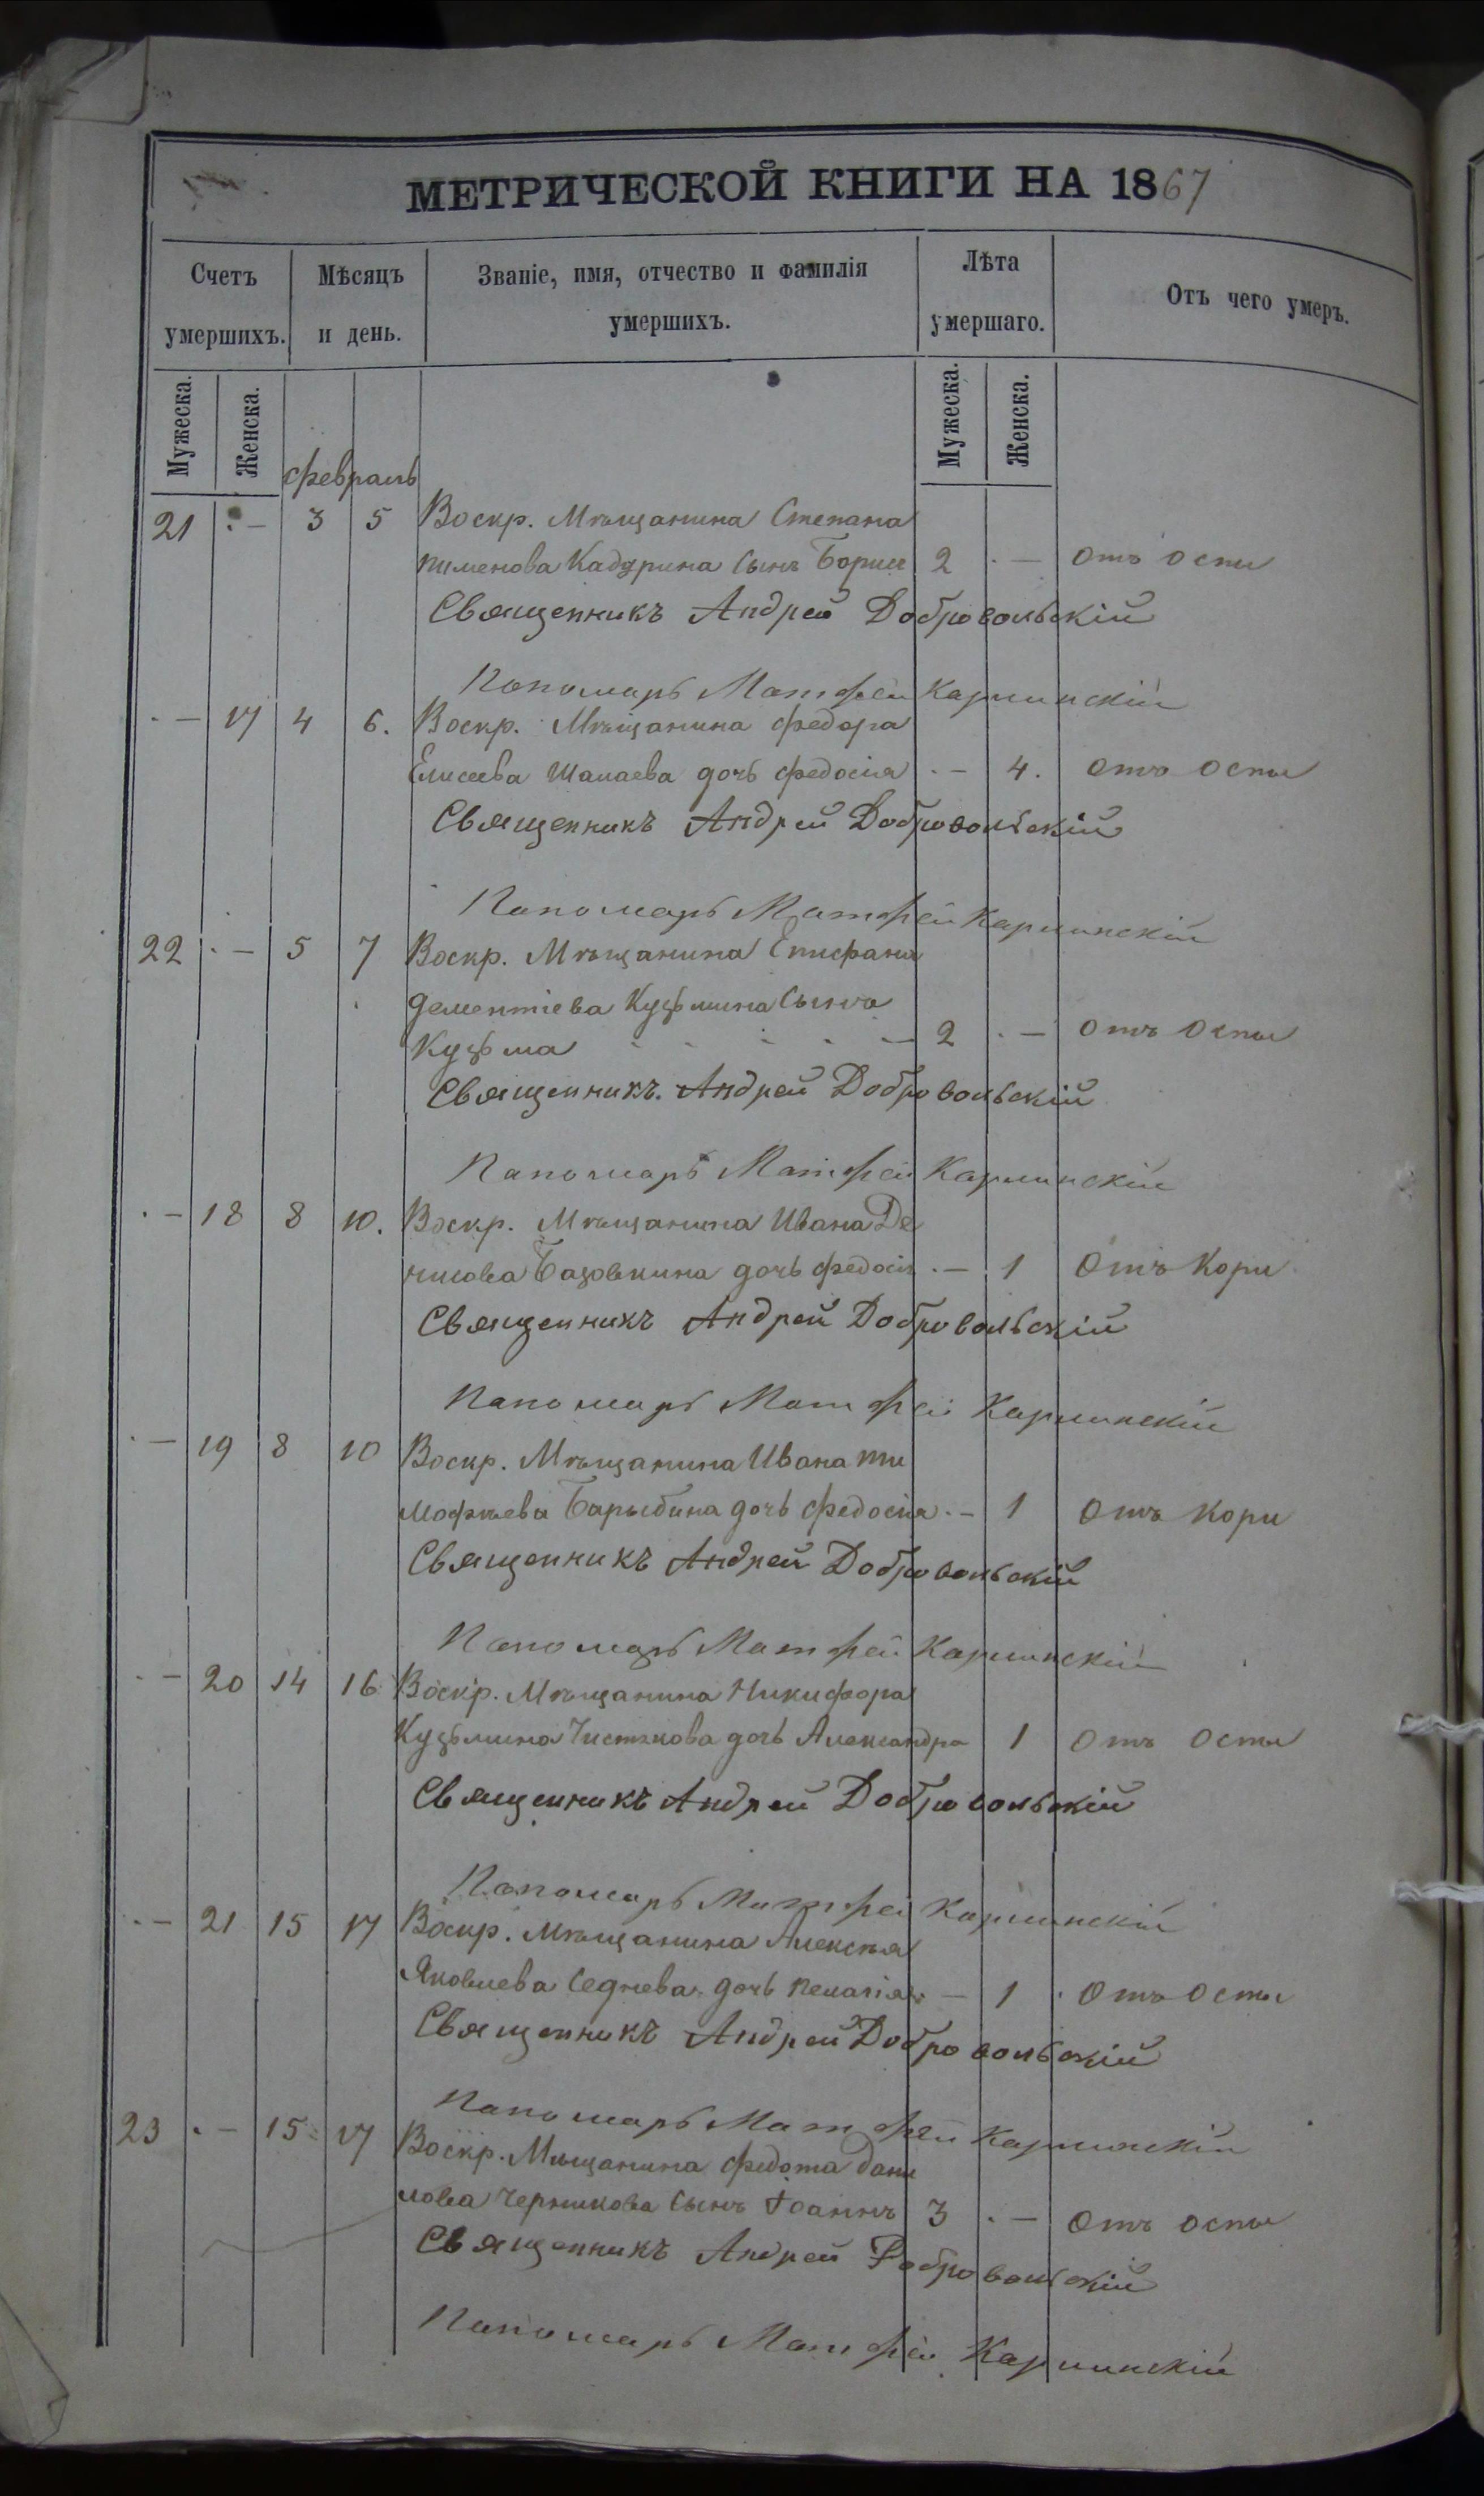 МЕТРИЧЕСКОЙ КНИГИ НА 1867
Счетъ умершихъ. Мѣсяцъ и день. Званіе, имя, отчество и фамилія умершихъ. Лѣта умершаго. Отъ чего умеръ.
Мужеска. Женска. Мужеска. Женска.
февраль
21 · — 3 5 Воскр. Мѣщанина Степана
Пименова Кадурина сынъ Борисъ 2 · — отъ оспы
Священникъ Андрей Добровольскій
Пономарь Матфей Карминскій
· — 17 4 6. Воскр. Мѣщанина Федора
Елисеева Шалаева дочь Федосія · — 4. отъ оспы
Священникъ Андрей Добровольскій
Пономарь Матфей Карминскій
22 · — 5 7 Воскр. Мѣщанина Епифана
Дементіева Кузьмина сынъ
Кузьма 2 · — отъ оспы
Священникъ. Андрей Добровольскій
Пономарь Матфей Карминскій
· — 18 8 10. Воскр. Мѣщанина Ивана Де
нисова Базовкина дочь Федосія · — 1 Отъ Кори
Священникъ Андрей Добровольскій
Пономарь Матфей Карминскій
· — 19 8 10 Воскр. Мѣщанина Ивана Ти
мофѣева Барыбина дочь Федосія · — 1 отъ кори
Священникъ Андрей Добровольскій
Пономарь Матфей Карминскій
· — 20 14 16 Воскр. Мѣщанина Никифора
Кузьмина Чистякова дочь Александра 1 отъ оспы
Священникъ Андрей Добровольскій
Пономарь Матфей Карминскій
· — 21 15 17 Воскр. Мѣщанина Алексѣя
Яковлева Седнева дочь Пелагія · — 1 отъ оспы
Священникъ Андрей Добровольскій
Пономарь Матфей Карминскій
23 · — 15 17 Воскр. Мѣщанина Федота Дани
лова Черникова сынъ Іоаннъ 3 · — отъ оспы
Священникъ Андрей Добровольскій
Пономарь Матфей Карминскій